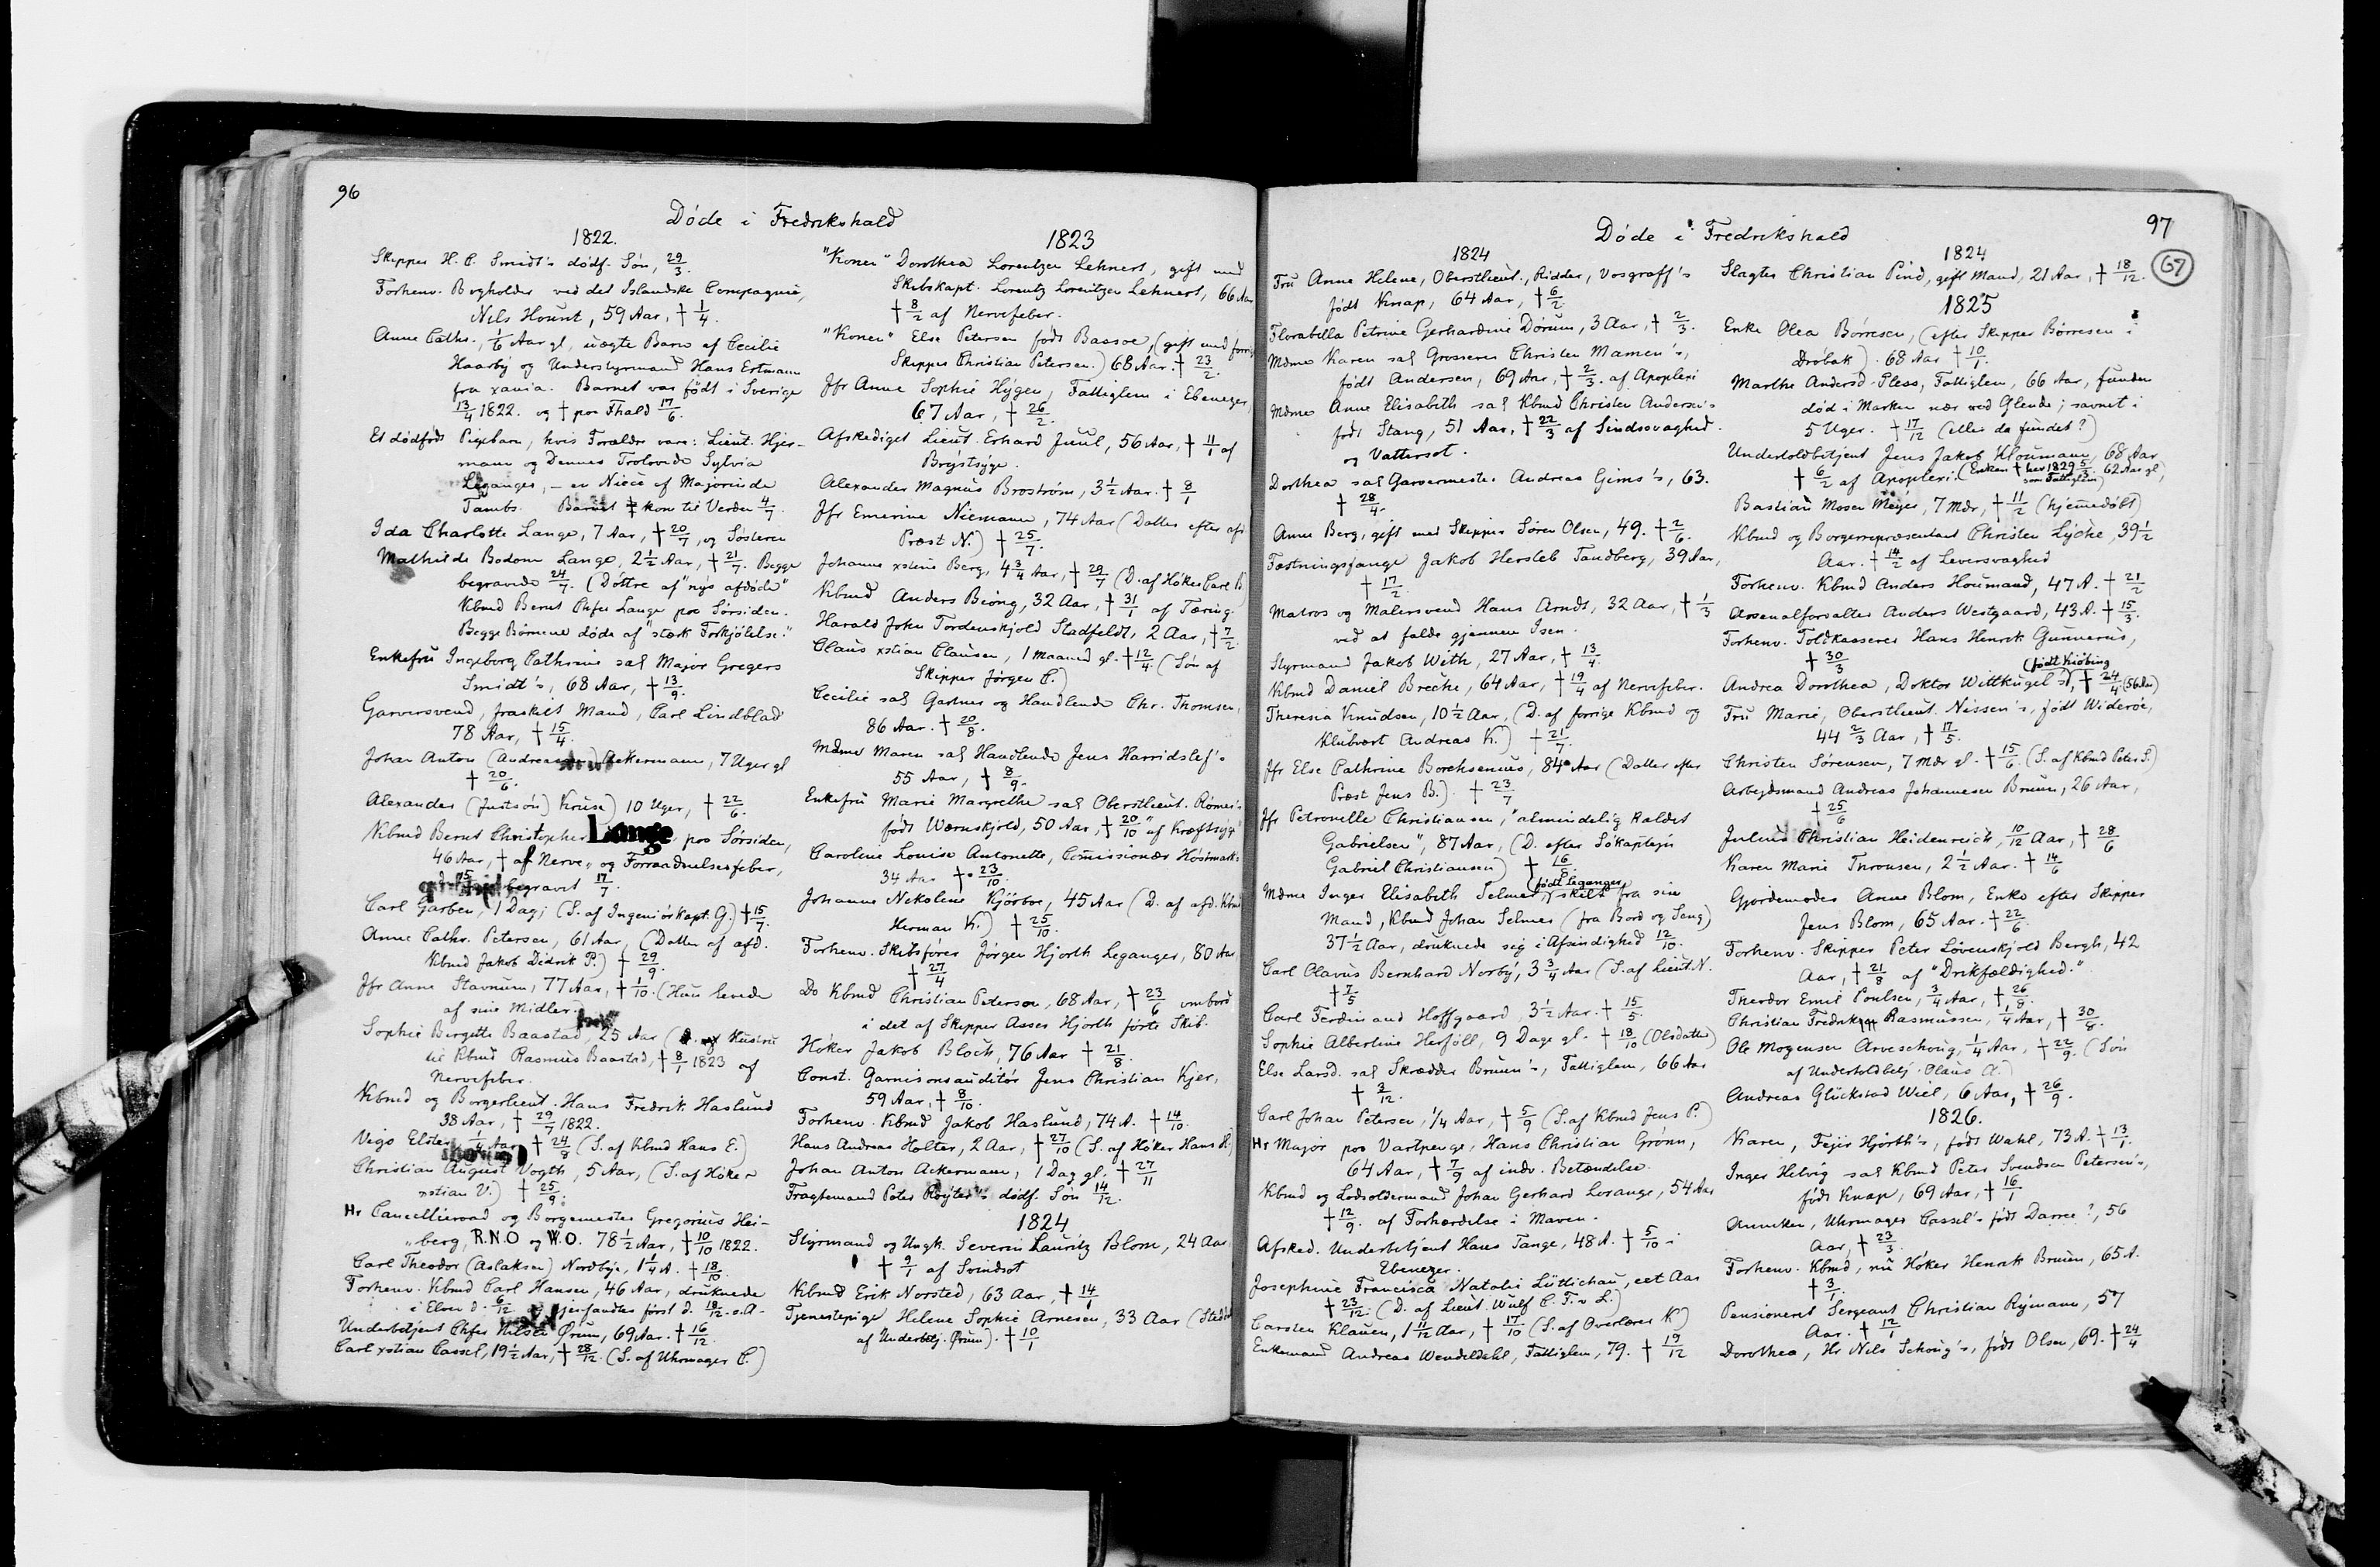 96
Döde i Fredrikshald
1822.
Skipper H. C. Smidt's dödf. Sön, 29/3.
Forhenv. Bogholder ved det Islandske Compagnie,
Niels Hount, 59 Aar, † 1/4.
Anne Cathr., 1/6 Aar gl, uægte Barn af Cecilie
Haarby og Understyrmand Hans Ertmann
fra xania. Barnet var födt i Sverige
13/4 1822. og † paa Fhald 17/6.
Et dödfödt Pigebarn, hvis Forældre vare: Lieut. Hjer-
mann og Dennes Trolovede Sylvia
Leganger, – en Niece af Majorinde
Tambs. Barnet kom til Verden 4/7.
Ida Charlotte Lange, 7 Aar, † 20/7, og Sösteren
Mathilde Bodom Lange, 2 1/2 Aar, † 21/7. Begge
begravede 24/7. (Döttre af "nys afdöde"
Kbmd Bernt Chfer Lange paa Sörsiden.
Begge Börnene döde af "stærk Forkjölelse."
Enkefru Ingeborg Cathrine sal Major Gregers
Smidt's, 68 Aar, † 13/9.
Garversvend, fraskilt Mand, Carl Lindblad
78 Aar, † 15/4.
Johan Anton Ackermann, 7 Uger gl
† 20/6.
Alexander (Justsön) Kruse) 10 Uger, † 22/6.
Kbmd Bernt Christopher Lange paa Sörsiden,
46 Aar, † af Nerve- og Forraadnelsesfeber,
15/7 begravet 17/7.
Carl Garben, 1 Dag; (S. af Ingeniörkapt. G.) † 15/7.
Anne Cathr. Petersen, 61 Aar, (Datter af afd.
Kbmd Jakob Didrik P.) † 29/9.
Jfr Anne Stavnum, 77 Aar, † 1/10. (Hun levede
af sine Midler.)
Sophie Birgitte Baastad, 25 Aar ( Hustru
til Kbmd Rasmus Baastad, † 8/1 1823 af
Nervefeber.
Kbmd og Borgerlieut. Hans Fredrik Haslund
38 Aar, † 29/7 1822.
Vigo Elster, 1/4 Aar † 24/8 (S. af Kbmd Hans E.)
Christian August Vogth, 5 Aar, (S. af Höker
xstian V.) † 25/9.
Hr Cancelliraad og Borgemester Gregorius Hei-
berg, R.N.O og W.O. 78 1/2 Aar, † 10/10 1822.
Carl Theodor (Aslaksen) Nordbye, 1 1/4 A. † 18/10.
Forhenv. Kbmd Carl Hansen, 46 Aar, druknede
i Elven d. 6/12 og gjenfandtes först d. 18/12 s. A.
Underbetjent Chfer Nilsen Ørum, 69 Aar. † 16/12.
Carl xstian Cassel, 19 1/2 Aar, † 28/12. (S. af Uhrmager C.)
1823
"Konen" Dorothea Lorentzen Lehnert, gift med
Skibskapt. Lorentz Lorentzen Lehnert, 66 Aar
† 8/2 af Nervefeber.
"Konen" Else Petersen födt Bassoe, (gift med forrige
Skipper Christian Petersen.) 68 Aar. † 23/2.
Jfr Anne Sophie Hygen, Fattiglem i Ebenezer,
67 Aar, † 26/2.
Afskediget Lieut. Erhard Juul, 56 Aar, † 11/1 af
Brystsyge.
Alexander Magnus Broström, 3 1/2 Aar. † 8/1
Jfr Emerine Niemann, 74 Aar (Datter efter afd
Præst N.) † 25/7.
Johanne xstine Berg, 4 3/4 Aar, † 29/7 (D. af Höker Carl B.
Kbmd Anders Biöng, 32 Aar, † 31/1 af Tæring.
Harald John Tordenskjold Stadfeldt, 2 Aar, † 7/2.
Claus xstian Clausen, 1 Maaned gl. † 12/4. (Sön af
Skipper Jörgen C.)
Cecilie sal Gartner og Handlende Chr. Thomsen,
86 Aar. † 20/8.
Mdme Maren sal Handlende Jens Harridslef's
55 Aar, † 8/9.
Enkefru Marie Margrethe sal Oberstlieut. Römer's
födt Wærnskjold, 50 Aar, † 20/10 "af Kræftsyge"
Caroline Louise Antonette, Comissionær Höstmark's
34 Aar † 23/10.
Johanne Nikoline Kjörboe, 45 Aar (D. af afd. Kbmd
Herman K.) † 25/10.
Forhenv. Skibsförer Jörgen Hjorth Leganger, 80 Aar
† 27/4
Do Kbmd Christian Peterson, 68 Aar, † 23/6 ombord
i det af Skipper Asser Hjorth förte Skib.
Höker Jakob Bloch, 76 Aar † 21/8.
Const. Garnisonsauditör Jens Christian Kjer,
59 Aar, † 8/10.
Forhenv. Kbmd Jakob Haslund, 74 A. † 14/10.
Hans Andreas Holter, 2 Aar, † 27/10 (S. af Höker Hans H.)
Johan Anton Ackermann, 1 Dag gl. † 27/11
Fragtemand Peter Röyter's dödf. Sön 14/12.
1824
Styrmand og Ungk. Severin Lauritz Blom, 24 Aar,
† 9/1 af Svindsot
Kbmd Erik Norsted, 63 Aar, † 14/1
Tjenestepige Helene Sophie Arnesen, 33 Aar (Steddt
af Underbetj. Ørum). † 10/1
97
Döde i Fredrikshald
67
1824
Fru Anne Helene, Oberstlieut., Ridder, Vosgraff's
födt Knap, 64 Aar, † 6/2.
Florabella Petrine Gerhardine Dörum, 3 Aar, † 2/3.
Mdme Karen sal Grosserer Christen Mamen's,
födt Andersen, 69 Aar, † 2/3. af Apoplexi
Mdme Anne Elisabeth sal Kbmd Christen Andersen's
födt Stang, 51 Aar, † 22/3 af Sindssvaghed
og Vattersot.
Dorthea sal Garvermester Andreas Gims's, 63.
† 28/4.
Anne Berg, gift med Skipper Sören Olsen, 49. † 2/6.
Fæstningsfange Jakob Hersleb Tandberg, 39 Aar,
† 17/2.
Matros og Malersvend Hans Arndt, 32 Aar, † 1/3
ved at falde gjennem Isen.
Styrmand Jakob With, 27 Aar, † 13/4.
Kbmd Daniel Breche, 64 Aar, † 19/4 af Nervefeber.
Theresia Knudsen, 10 1/2 Aar, (D. af forrige Kbmd og
Klubvært Andreas K.) † 21/7.
Jfr Else Cathrine Borchsenius, 84 Aar (Datter efter
Præst Jens B.) † 23/7
Jfr Petronelle Christiansen, "almindelig kaldet
Gabrielsen", 87 Aar, (D. efter Sökaptejn
Gabriel Christiansen) † 16/8.
Mdme Inger Elisabeth Selmer, (födt Leganger) skilt fra sin
Mand, Kbmd Johan Selmer (fra Bord og Seng)
37 1/2 Aar, druknede sig i Afsindighed 12/10.
Carl Olavus Bernhard Norby, 3 3/4 Aar (S. af Lieut. N.
† 7/5
Carl Ferdinand Hoffgaard, 3 1/2 Aar. † 15/5.
Sophie Albertine Herföll, 9 Dage gl. † 18/10 (Olsdatter)
Else Larsd. sal Skrædder Bruun's, Fattiglem, 66 Aar
† 3/12.
Carl Johan Petersen, 1/4 Aar, † 5/9 (S. af Kbmd Jens P.)
Hr Major paa Vartpenge, Hans Christian Grönn,
64 Aar, † 7/9 af indv. Betændelse.
Kbmd og Lodsoldermand Johan Gerhard Lorange, 54 Aar
† 12/9. af Forhærdelse i Maven.
Afsked. Underbetjent Hans Tange, 48 A. † 5/10 i
Ebenezer.
Josephine Francisca Natalie Lüttichau, eet Aar
† 23/12. (D. af Lieut. Wulf C. F. v L.)
Carsten Klauen, 1 11/12 Aar, † 17/10 (S. af Overlærer K)
Enkemand Andreas Wendeldahl, Fattiglem, 79. † 19/12
1824
Slagter Christian Pind, gift Mand, 21 Aar, † 18/12.
1825
Enke Olea Börresen, (efter Skipper Börresen i
Dröbak). 68 Aar † 10/1.
Marthe Andersd. Pless, Fattiglem, 66 Aar, funden
död i Marken nær ved Glende; savnet i
5 Uger. † 17/12 (eller da fundet?)
Underholdbetjent Jens Jakob Houmann, 68 Aar
† 6/2 af Apoplexi. (Enken † her 1829 5/3. 62 Aar gl, som Fattiglem)
Bastian Moser Meyer, 7 Mdr, † 11/2 (hjemmedöbt)
Kbmd og Borgerrepræsentant Christen Lyche, 39 1/2
Aar. † 14/2 af Leversvaghed
Forhenv. Kbmd Anders Houmand, 47 A. † 21/2
Arsenalforvalter Anders Westgaard, 43 A. † 15/3.
Forhenv. Toldkasserer Hans Henrik Gunnerus,
† 30/3
Andrea Dorothea, Doktor Wittkugel's, (födt Kiöbing) † 24/4. (56 Aar)
Fru Marie, Oberstlieut. Nissen's, födt Wideröe,
44 2/3 Aar, † 17/5.
Christen Sörensen, 7 Mdr gl. † 15/6. (S. af Kbmd Peter S.)
Arbejdsmand Andreas Johannesen Bruun, 26 Aar,
† 25/6
Julius Christian Heidenreich, 10/12 Aar, † 28/6
Karen Marie Thronsen, 2 1/2 Aar. † 14/6
Gjordemoder Anne Blom, Enke efter Skipper
Jens Blom, 65 Aar. † 22/6.
Forhenv. Skipper Peter Lövenskjold Bergh, 42
Aar, † 21/8 af "Drikfældighed."
Theodor Emil Poulsen, 3/4 Aar, † 26/8.
Christian Fredriksen Rasmussen, 1/4 Aar, † 30/8.
Ole Mogensen Arveschoug, 1/4 Aar, † 22/9. (Sön
af Underholdbetj. Olaus A.)
Andreas Glückstad Wiel, 6 Aar, † 26/9.
1826.
Karen, Fejer Hjorth's, födt Wahl, 73 A. † 13/1.
Inger Helvig sal Kbmd Peter Svendsen Petersen's,
födt Knap, 69 Aar, † 16/1
Anniken, Uhrmager Cassel's födt Darree?, 56
Aar, † 23/3.
Forhenv. Kbmd, nu Höker Henrik Bruun, 65 A.
† 3/1.
Pensioneret Sergeant Christian Rymann, 57
Aar. † 12/1
Dorothea, Hr Nils Schoug's, födt Olsen, 69. † 24/4